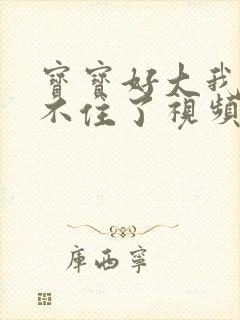 寶寶好大我
不住了視頻
庫西寧